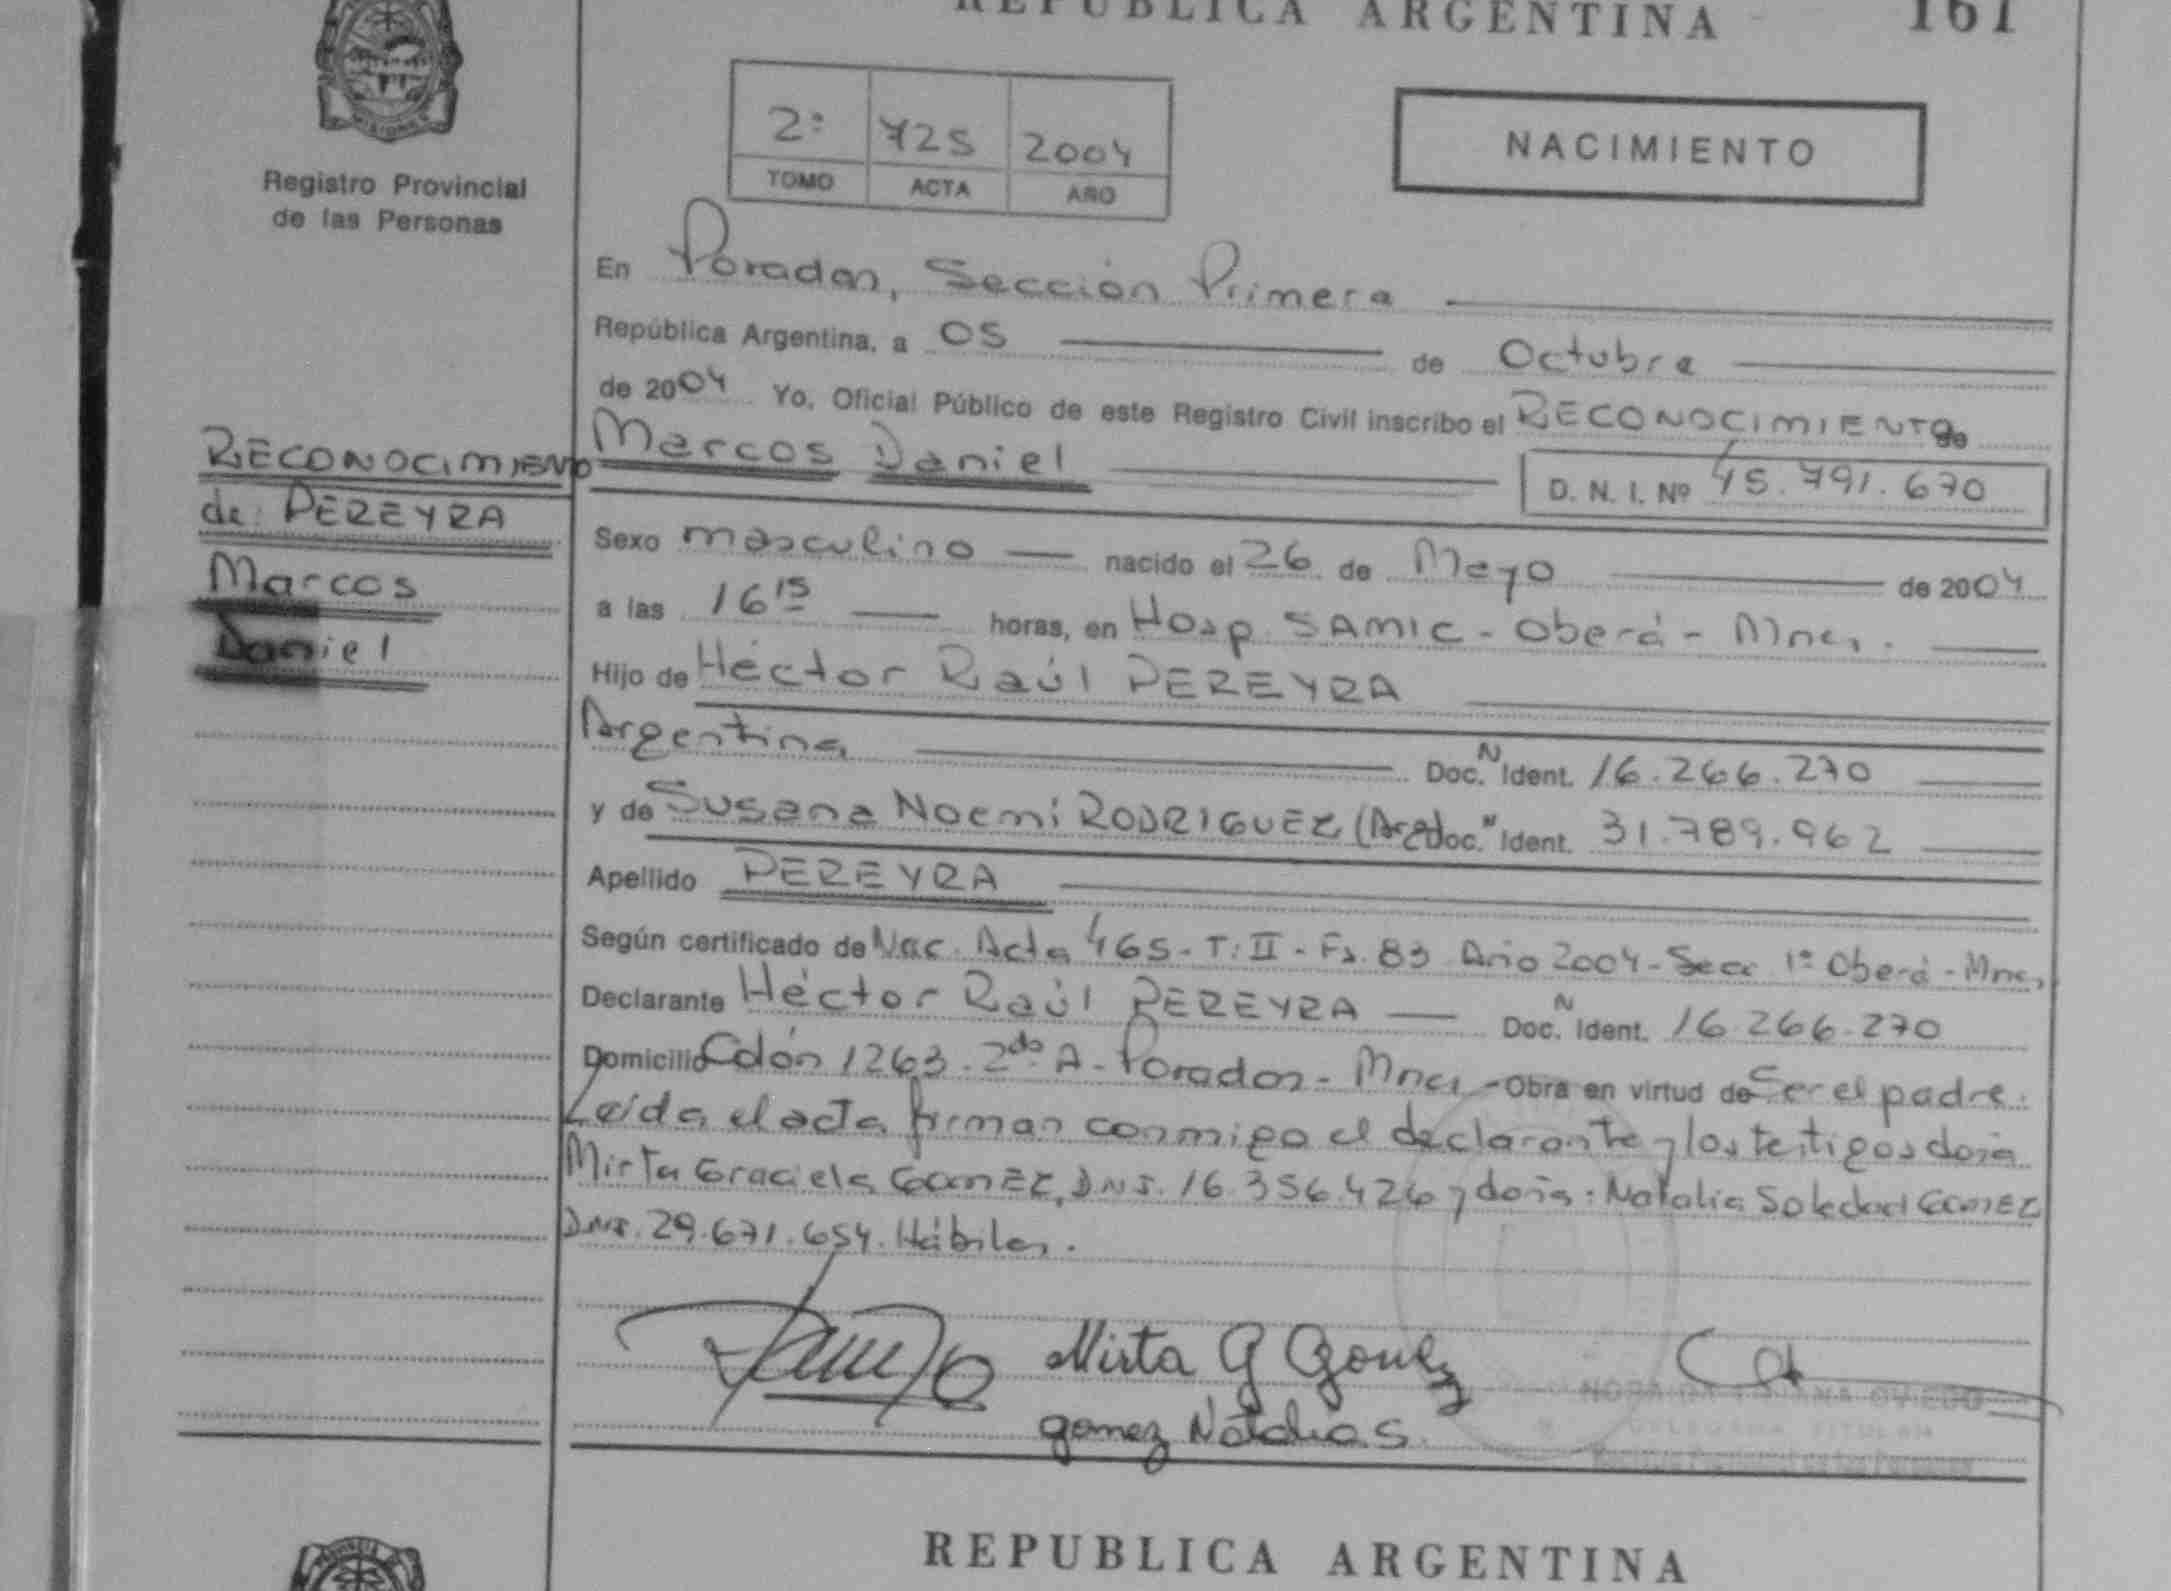 REPUBLICA ARGENTINA 161
MISIONES
Registro Provincial
de las Personas
2º 725 2004
TOMO ACTA AÑO
NACIMIENTO
En Posadas, Sección Primera
República Argentina, a 05 de Octubre
de 2004 Yo, Oficial Público de este Registro Civil inscribo el RECONOCIMIENTO de
Marcos Daniel
D. N. I. Nº 45.791.670
RECONOCIMIENTO
de: PEREYRA
Marcos
Daniel
Sexo masculino nacido el 26 de Mayo de 2004
a las 16 15 horas, en Hosp. SAMIC - Oberá - Mnes.
Hijo de Héctor Raúl PEREYRA
Argentina Doc. N Ident. 16.266.270
y de Susana Noemí RODRIGUEZ (Arg) Doc. N Ident. 31.789.962
Apellido PEREYRA
Según certificado de Nac. Acta 465 - T: II - Fs. 83 Año 2004 - Secc 1º Oberá - Mnes,
Declarante Héctor Raúl PEREYRA Doc. N Ident. 16.266.270
Domicilio Colón 1263 - 2do A - Posadas - Mnes - Obra en virtud de Ser el padre.
Leída el acta firman conmigo el declarante y los testigos doña
Mirta Graciela GOMEZ, DNI. 16.356.426 y doña: Natalia Soledad GOMEZ
DNI. 29.671.654. Hábiles.
Mirta G Gomez
gomez Natalia S.
REPUBLICA ARGENTINA